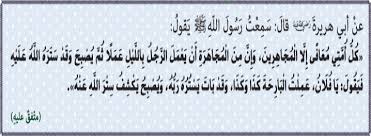 عَنْ أَبِي هريرةَ رضي الله عنه قَالَ: سَمِعْتُ رَسُولَ اللهِ ﷺ يَقولُ:
«كُلُّ أُمَّتِي مُعَافًى إِلَّا المُجَاهِرِينَ، وَإِنَّ مِنَ المُجَاهَرَةِ أَنْ يَعْمَلَ الرَّجُلُ بِاللَّيْلِ عَمَلًا ثُمَّ يُصْبِحَ وَقَدْ سَتَرَهُ اللَّهُ عَلَيْهِ
فَيَقُولَ: يَا فُلَانُ، عَمِلْتُ البَارِحَةَ كَذَا وَكَذَا، وَقَدْ بَاتَ يَسْتُرُهُ رَبُّهُ، وَيُصْبِحُ يَكْشِفُ سِتْرَ اللَّهِ عَنْهُ».
(متَّفقٌ عليهِ)